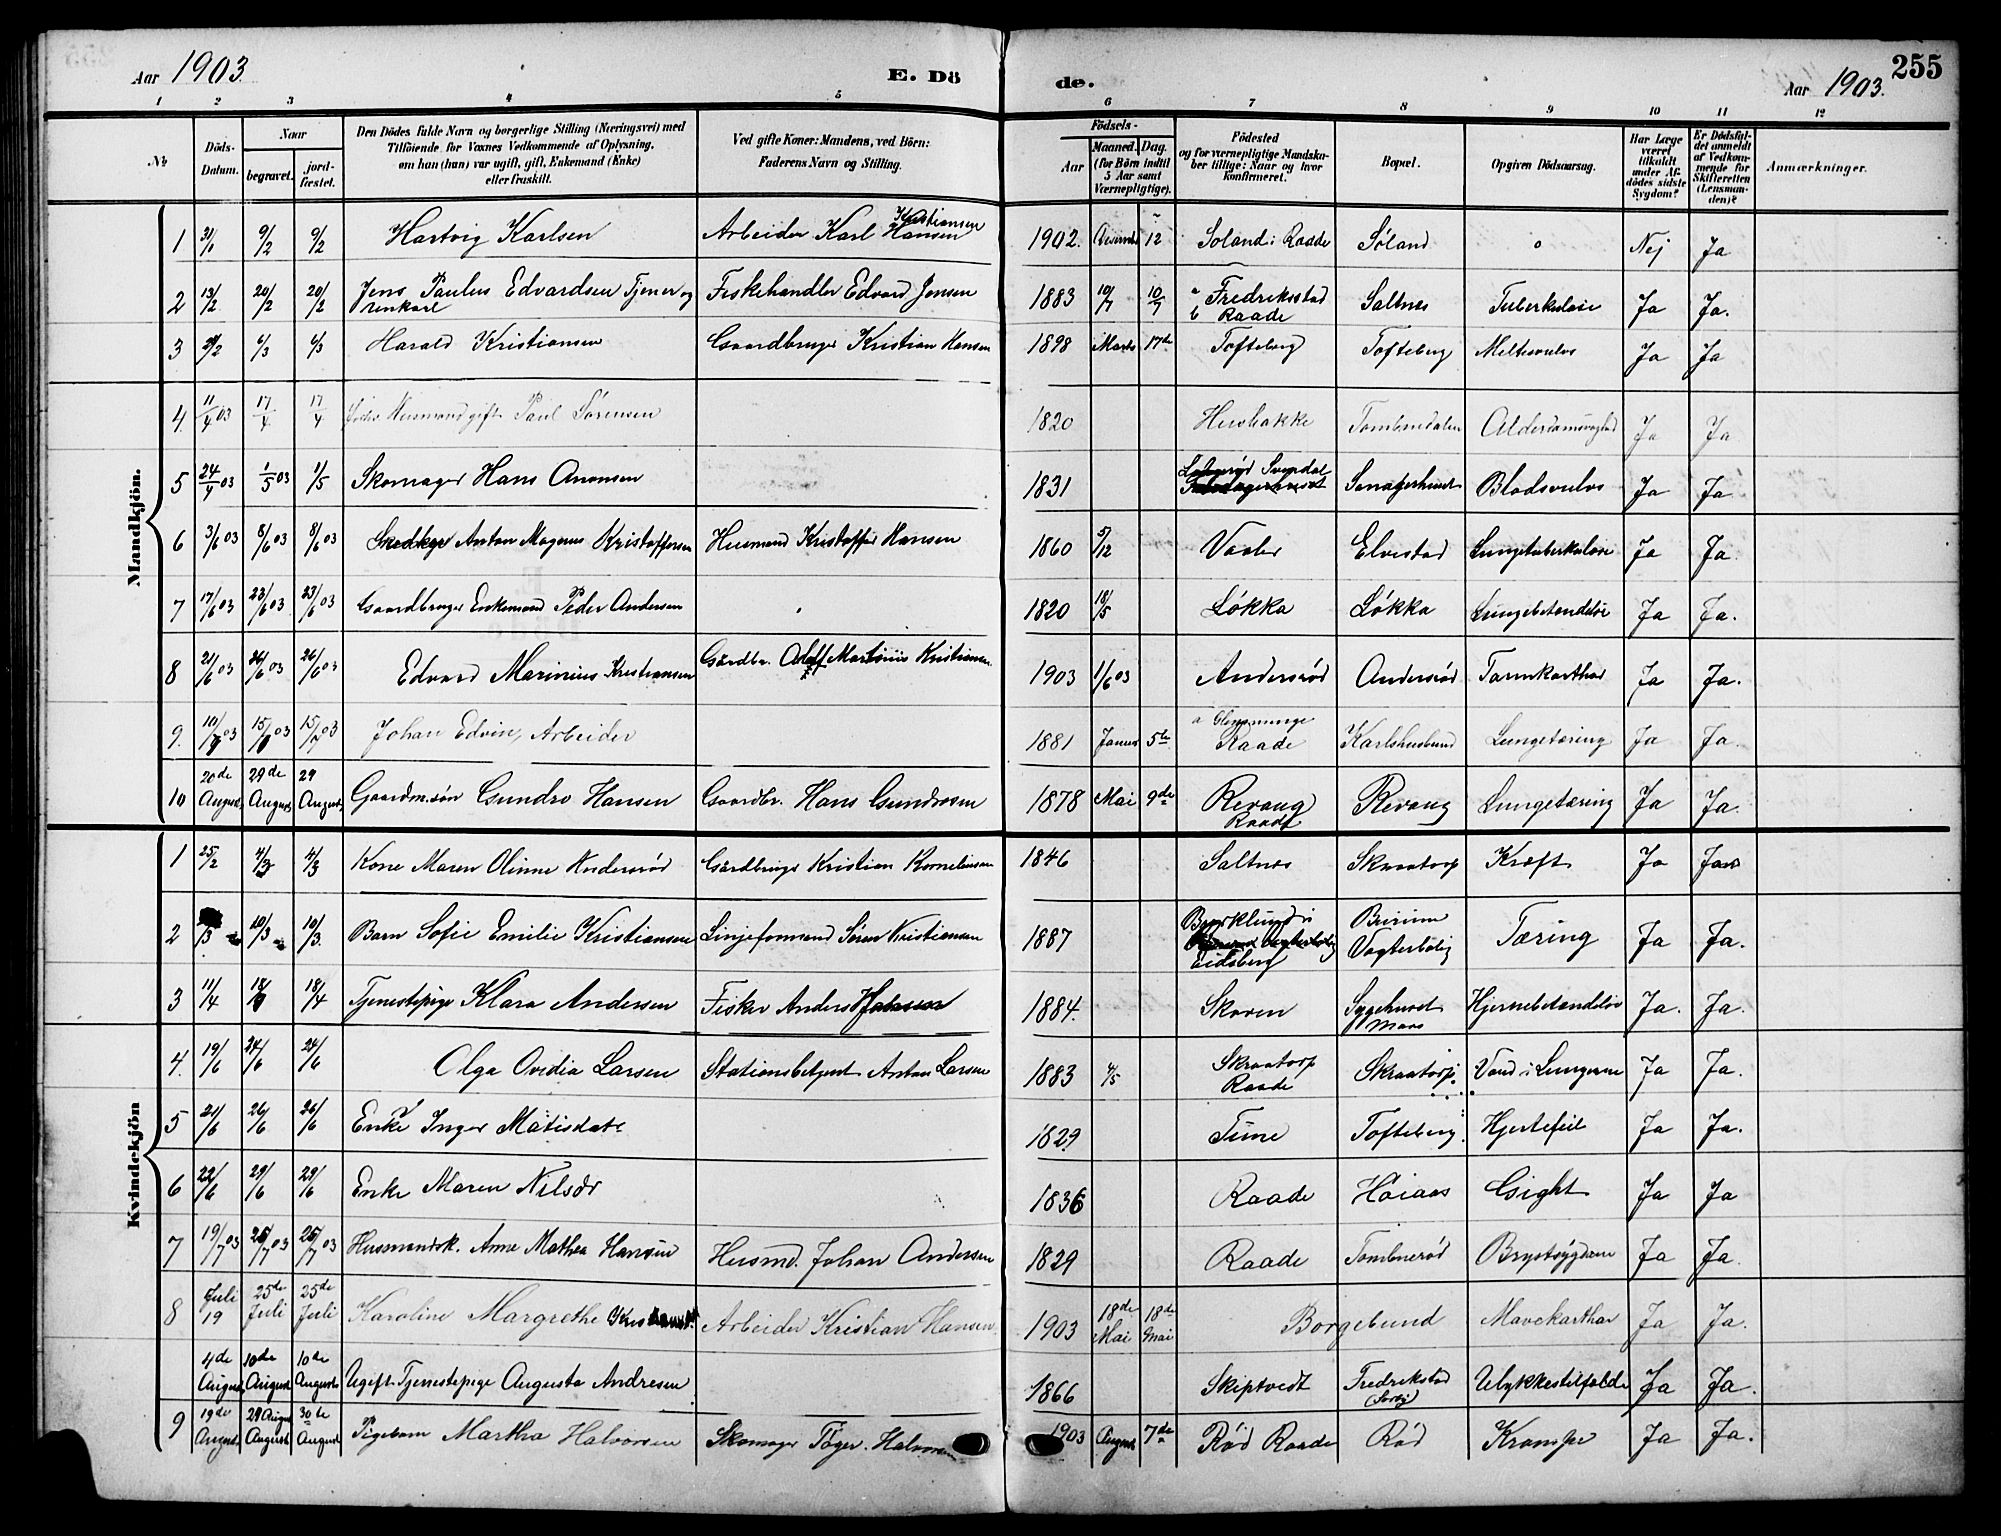 Aar 1903.
E. Dö
de.
Aar 1903.
255
1 2 3 4 5 6 7 8 9 10 11 12
No
Döds-Datum.
Naar
begravet.
jord-fæstet.
Den Dödes fulde Navn og borgerlige Stilling (Næringsvei) med
Tilföiende for Voxnes Vedkommende af Oplysning,
om han (hun) var ugift, gift, Enkemand (Enke)
eller fraskilt.
Ved gifte Koner: Mandens, ved Börn:
Faderens Navn og Stilling.
Födsels-
Aar
Maaned. Dag.
(for Börn indtil
5 Aar samt
Værnepligtige).
Födested
og for værnepligtige Mandska-
ber tillige: Naar og hvor
konfirmeret.
Bopæl.
Opgiven Dödsaarsag.
Har Læge
været
tilkaldt
under Af-
dödes sidste
Sygdom?
Er Dödsfal-
det anmeldt
af Vedkom-
mende for
Skifteretten
(Lensman-
den)?
Anmærkninger.
Mandkjön.
1 31/1 9/2 9/2 Hartvig Karlsen Arbeider Karl Hansen Kristiansen 1902. 12 Soland i Raade Søland Nej Ja
2 13/2 20/2 20/2 Jens Paulus Edvardsen Tjener og Fiskehandler Edvard Jensen 1883 10/7 10/7 a Fredriksstad b Raade Saltnes Tuberkulose Ja Ja.
3 6/3 6/3 Harald Kristiansen Gaardbruger Kristian Hansen 1898 Marts 17de Tofteberg Tofteberg Ja Ja
4. 11/4 03 17/4 17/4 Husmand gift Paul Sørensen 1820 Husbakke Tombnedalen Ja Ja
5 24/4 03 1/5 03 1/5 Skomager Hans Aronsen 1831 Svindal Blodsvulst Ja Ja
6 3/6 03 8/6 03 8/6 03 Anton Magnus Kristoffersen Husmand Kristoffer Hansen 1860 5/12 Vaaler Elvestad Lungetuberkulose Ja Ja.
7 17/6 03 23/6 03 23/6 03 Gaardbruger Enkemand Peder Andersen 1820 18/5 Løkka Løkka Lungebetændelse Ja Ja.
8 21/6 03 26/6 03 26/6 03 Edvard Marinius Kristiansen Gårdbr. Adolf Martinius Kristiansen 1903 1/6 03 Andersrød Andersrød Tarmkathar Ja Ja.
9. 10/7 03 15/7 03 15/7 03 Johan Edvin, Arbeider 1881 Januar 5te a Glemminge Raade Karlshuslund Lungetæring Ja Ja.
10 20de August 29de August 29 August Gaardm.søn Gundro Hansen Gaardbr. Hans Gundrosen 1878 Mai 9de Revaug Raade Revaug Lungetæring Ja Ja.
Kvindekjön
1 25/2 4/3 4/3 Kone Maren Olinne Andersrød Gårdbruger Kristian Kornelius​en 1846 Saltnes Skraatorp Kræft Ja Ja
2 10/3 10/3. Barn Sofie Emilie Kristiansen Linjeformand Søren Kristiansen 1887 Bjørklund i Eidsberg Vogterbolig Tæring Ja Ja.
3 11/4 18/4 18/4 Tjenestepige Klara Andersen Fisker Anders 1884. Skoven Sygehuset Moss Hjernebetændelse Ja. Ja.
4. 19/6 24/6 24/6 Olga Ovidia Larsen Stationsbetjent Anton Larsen 1883 4/5 Skraatorp Raade Skraatorp. Vand i Lungerne Ja Ja.
5 21/6 26/6 26/6 Enke Inger Matisdatr 1829 Tune Tofteberg. Hjertefeil Ja Ja.
6 22/6 29/6 29/6 Enke Maren Nilsdr 1836 Raade Høiaas Gight Ja Ja
7 19/7 03 25/7 03 25/7 03 Husmandsk. Anne Mathea Hansen Husmd. Johan Andersen 1829 Raade Tombnerød Brystsygdom Ja Ja.
8 Juli 19 25de Juli 25de Juli Karoline Margrethe Arbeider Kristian Hansen. 1903 18de Mai 18de Mai Borgebund Mavekathar Ja Ja.
4de August 10de August 10de August Ugift Tjenestepige Augusta Andresen 1866 Skiptvedt Fredrikstad Ulykkestilfælde Ja Ja.
9 19de August 29 August 30te August Pigebarn Martha Halvorsen Skomager Tøger Halvorsen 1903 August 7de Rød Raade Rød Krampe Ja Ja.